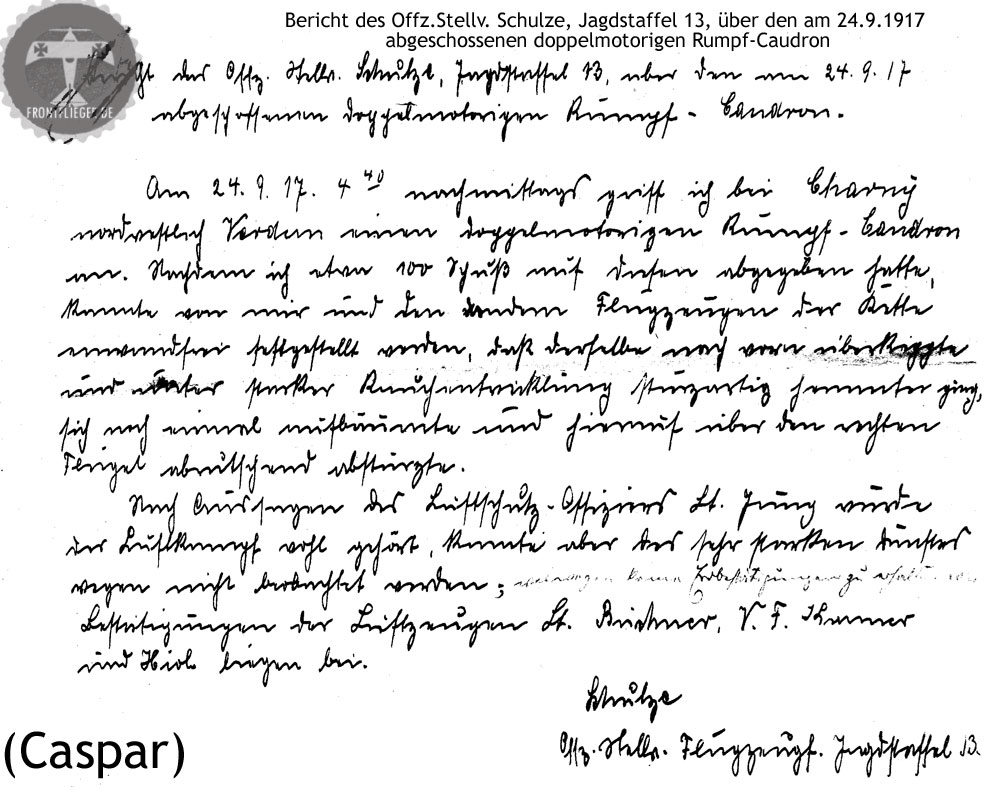 Bericht des Offz.Stellv. Schulze, Jagdstaffel 13, über den am 24.9.1917
abgeschossenen doppelmotorigen Rumpf-Caudron
FRONTFLIEGER.DE
Bericht des Offz. Stellv. Schulze, Jagdstaffel 13, über den am 24.9.17
abgeschossenen doppelmotorigen Rumpf-Caudron.
Am 24.9.17. 4 40 nachmittags griff ich bei Charny
nordwestlich Verdun einen doppelmotorigen Rumpf-Caudron
an. Nachdem ich etwa 100 Schuß auf diesen abgegeben hatte,
konnte von mir und den andern Flugzeugen der Kette
einwandfrei festgestellt werden, daß derselbe nach vorn überkippte
und unter starker Rauchentwicklung sturzartig herunter ging,
sich noch einmal aufbäumte und hierauf über den rechten
Flügel abrutschend abstürzte.
Nach Aussagen des Luftschutz-Offiziers Lt. Jung wurde
der Luftkampf wohl gehört, konnte aber des sehr starken Dunstes
wegen nicht beobachtet werden; keine Erdbestätigungen zu
Bestätigungen der Luftzeugen Lt. Büchner, V. F.
und liegen bei.
Schulze
Offz. Stellv. Flugzeugf. Jagdstaffel 13.
(Caspar)